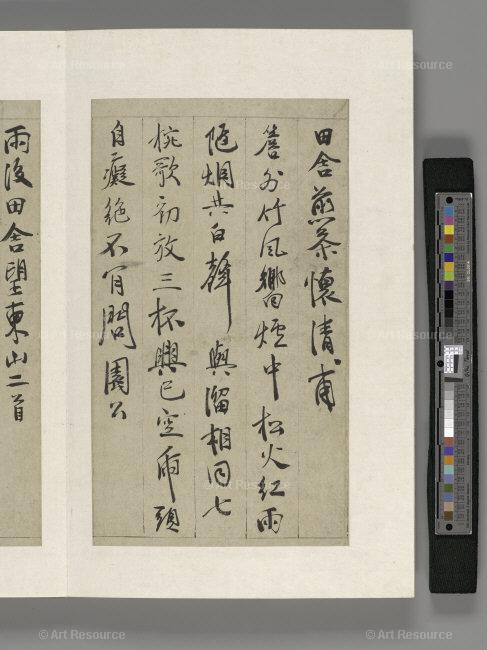 田舍煎茶懷清甫
簷外竹風響爐中松火紅雨
陁烟共白聲與溜相同七
椀歌初放三杯興已空兩頭
自癡絕不肯問園公
雨後田舍望東山二首
© Art Resource
© Art Resource
© Art Resource
© Art Resource